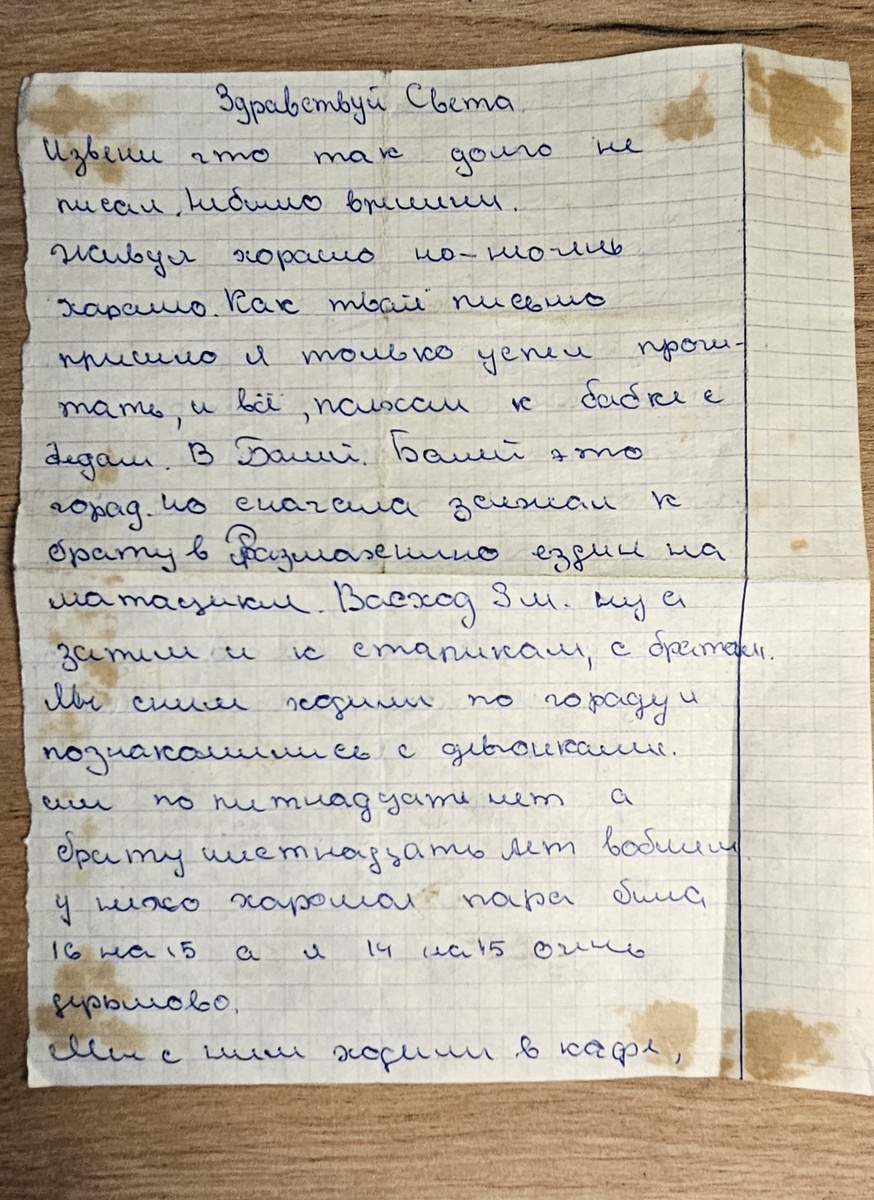 Здравствуй Света.
Извени что так долго не
писал. Небыло времини.
Живуя хорашо но-ниочень
харашо. Как тваё письмо
пришло я только успел прочи-
тать, и всё, паехал к бабке с
дедам. В Балей. Балей это
горад. но сначала заежал к
брату в Размахнино ездил на
матацикл. Васход 3 м. ну а
затем и к старикам, с братам.
Мы сним ходили по гораду и
познакомились с девчонками.
им по питнадцати лет а
брату шестнадцать лет вобщем
у него харошая пара была
16 на 15 а я 14 на 15 очень
дерьмово.
Мы с ним ходили в кафе,